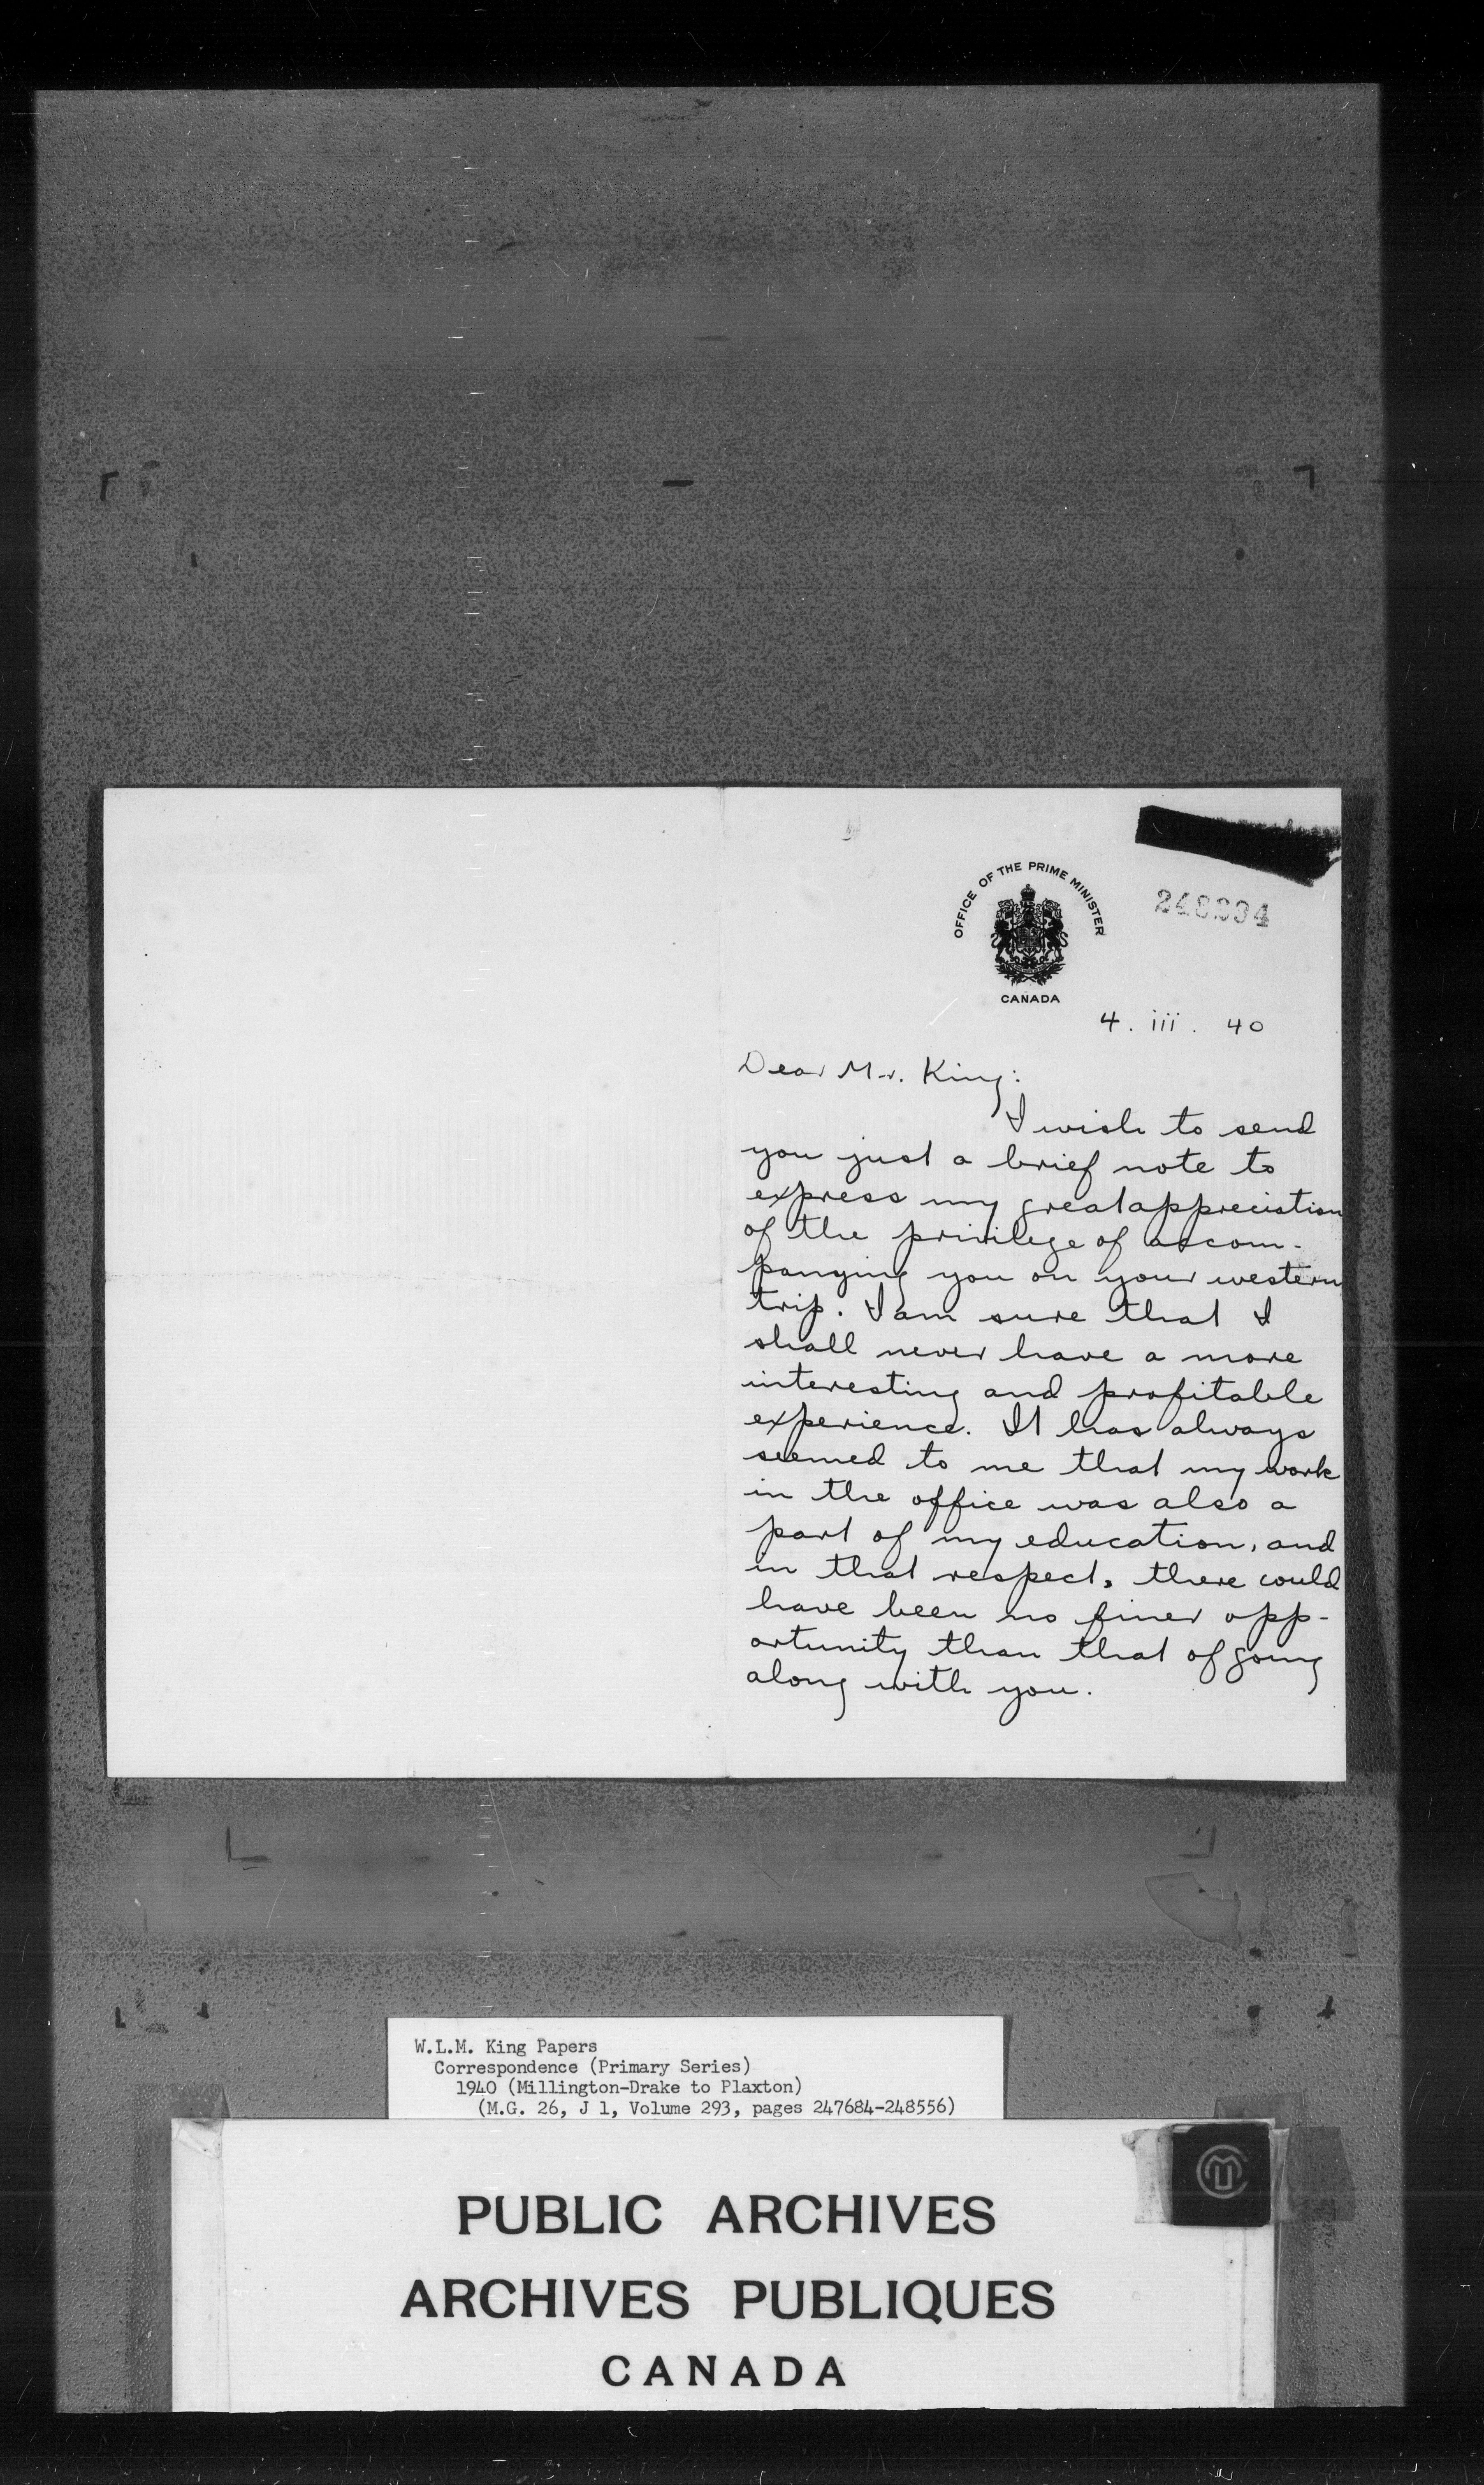 OFFICE OF THE PRIME MINISTER
CANADA
4. iii. 40
Dear Mr. King:
I wish to send
you just a brief note to
express my great appreciation
of the privilege of accom-
panying you on your western
trip. I am sure that I
shall never have a more
interesting and profitable
experience. It has always
seemed to me that my work
in the office was also a
part of my education, and
in that respect, there could
have been no finer opp-
ortunity than that of going
along with you.
W.L.M. King Papers
Correspondence (Primary Series)
1940 (Millington-Drake to Plaxton)
(M.G. 26, J 1, Volume 293, pages 247684-248556)
PUBLIC ARCHIVES
ARCHIVES PUBLIQUES
CANADA